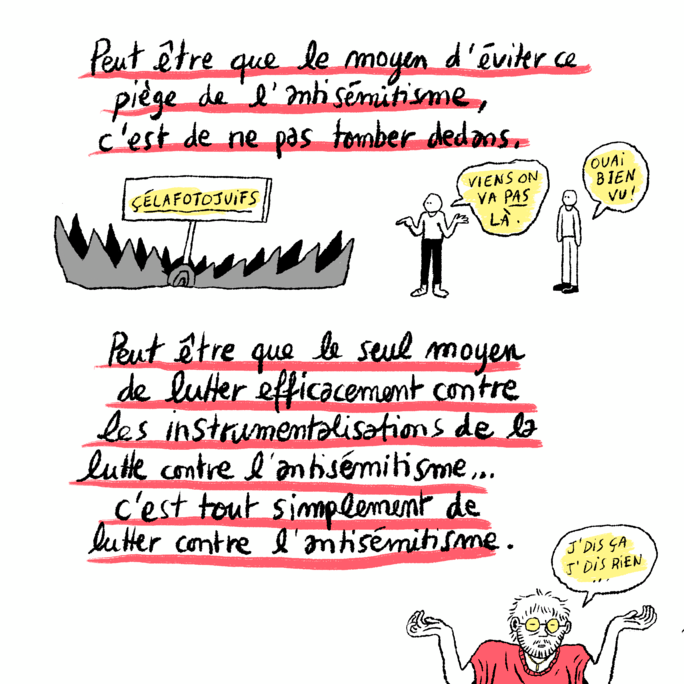 Peut être que le moyen d'éviter ce
piège de l'antisémitisme,
c'est de ne pas tomber dedans.
ÇÉLAFOTOJUIFS
VIENS ON
VA PAS
LÀ.
OUAI
BIEN
VU!
Peut être que le seul moyen
de lutter efficacement contre
les instrumentalisations de la
lutte contre l'antisémitisme...
c'est tout simplement de
lutter contre l'antisémitisme.
J'DIS ÇA
J'DIS RIEN
...